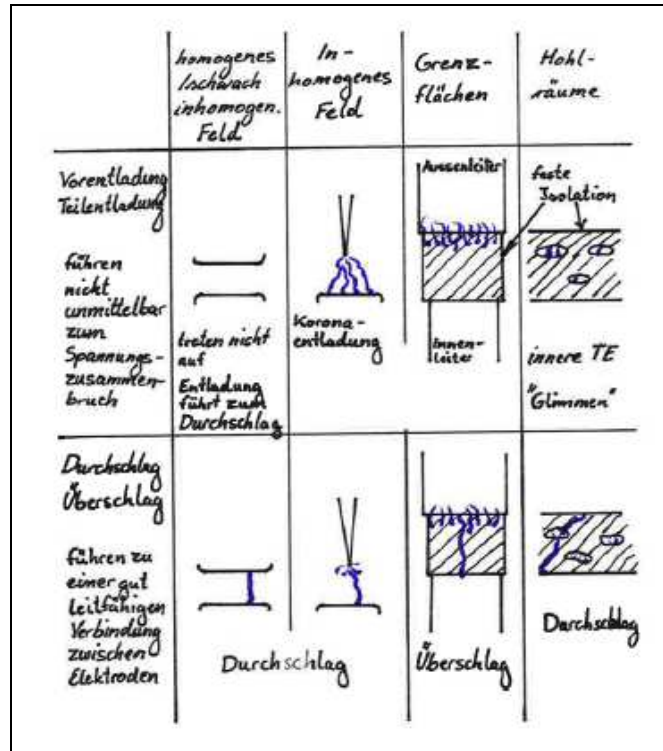 homogenes
/schwach
inhomogen.
Feld
In-
homogenes
Feld
Grenz-
flächen
Hohl-
räume
Vorentladung
Teilentladung
führen
nicht
unmittelbar
zum
Spannungs-
zusammen-
bruch
treten nicht
auf
Entladung
führt zum
Durchschlag
Korona-
entladung
Aussenleiter
Innen-
leiter
feste
Isolation
innere TE
"Glimmen"
Durchschlag
Überschlag
führen zu
einer gut
leitfähigen
Verbindung
zwischen
Elektroden
Durchschlag
Überschlag
Durchschlag